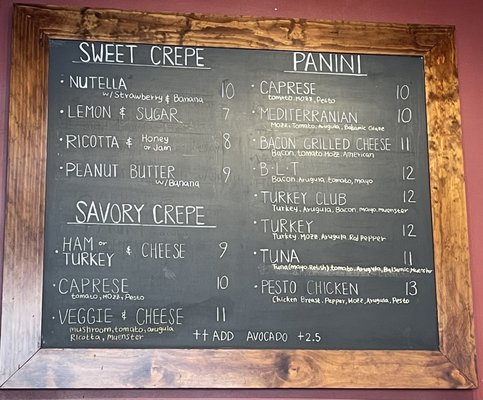 SWEET CREPE
· NUTELLA 10
w/Strawberry & Banana
· LEMON & SUGAR 7
· RICOTTA & Honey or Jam 8
· PEANUT BUTTER 9
w/Banana
SAVORY CREPE
· HAM or TURKEY & CHEESE 9
· CAPRESE 10
tomato, mozz, Pesto
· VEGGIE & CHEESE 11
mushroom, tomato, arugula
Ricotta, Muenster
PANINI
· CAPRESE 10
tomato, Mozz, Pesto
· MEDITERRANIAN 10
Mozz, Tomato, Arugula, Balsamic Glaze
· BACON GRILLED CHEESE 11
Bacon, tomato, Mozz, American
· B-L-T 12
Bacon, Arugula, tomato, mayo
· TURKEY CLUB 12
Turkey, Arugula, Bacon, mayo, muenster
· TURKEY 12
Turkey, Mozz, Arugula, Rd Pepper
· TUNA 11
Tuna (mayo, Relish), tomato, Arugula, Balsamic, Muenster
· PESTO CHICKEN 13
Chicken Breast, Pepper, Mozz, Arugula, Pesto
++ ADD AVOCADO +2.5